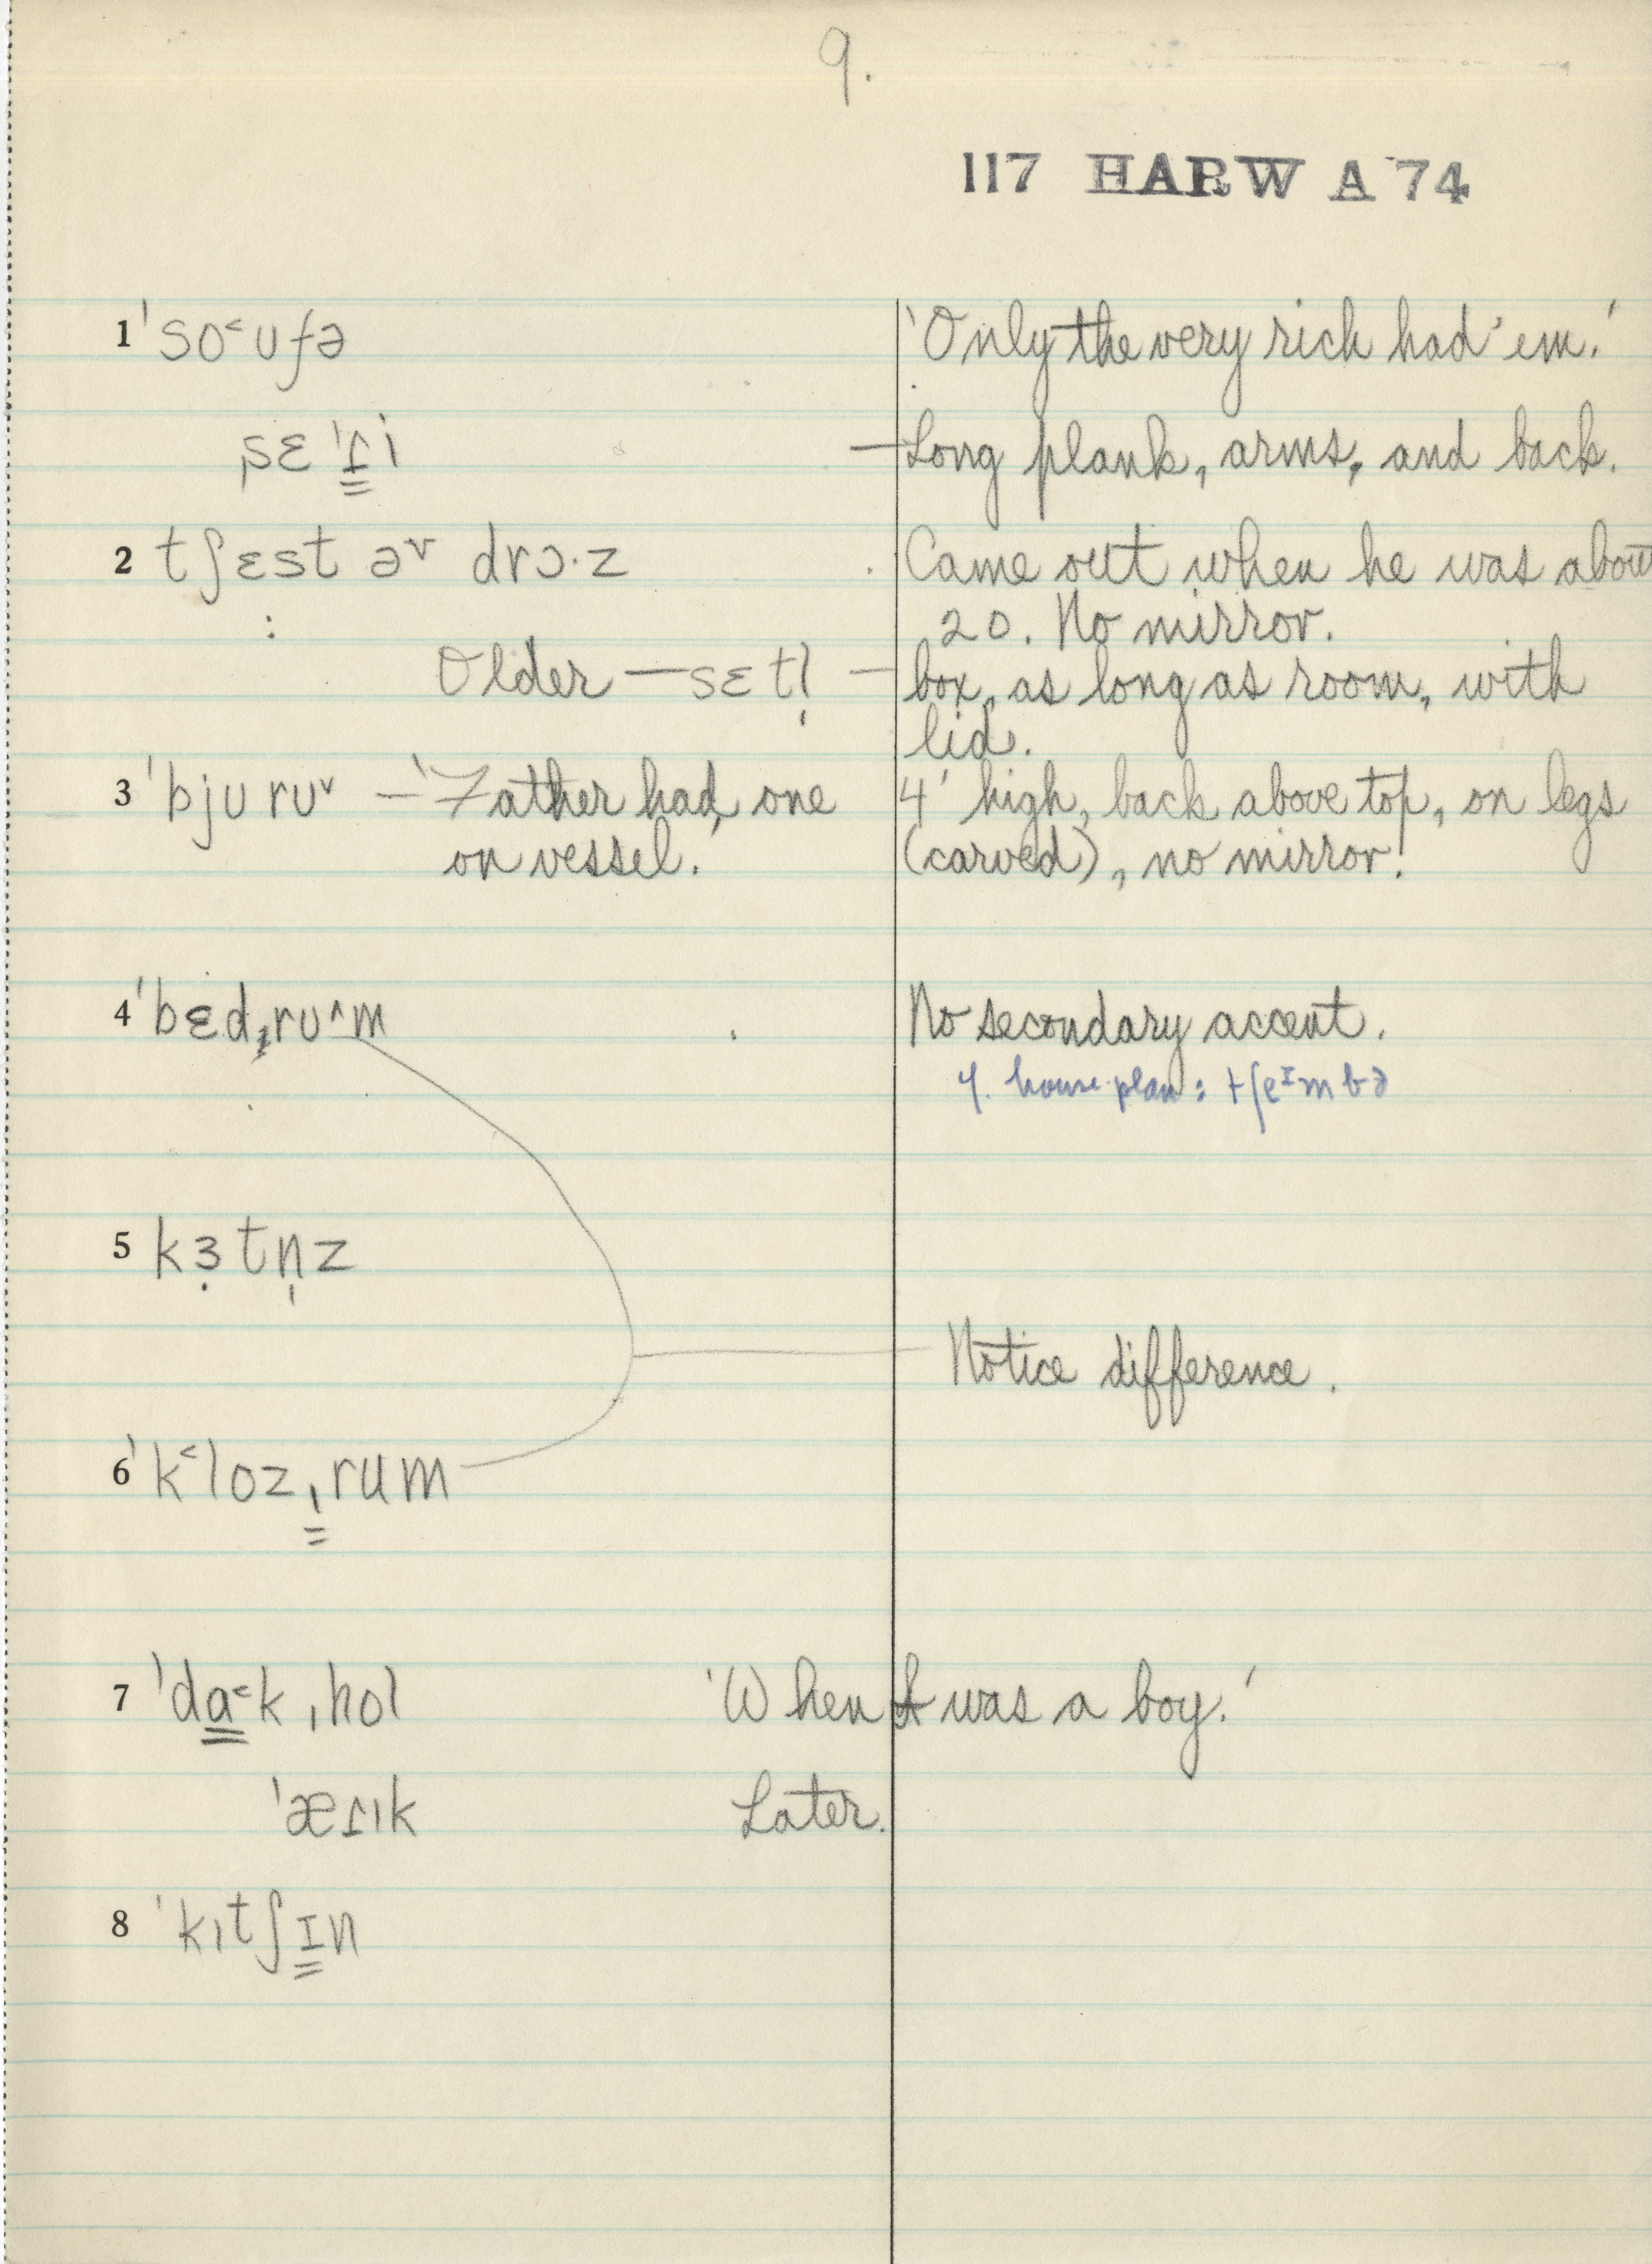 9.
117 HARW A 74
1 ˈso˂ʊfə 'Only the very rich had 'em.'
sɛˈɾi — Long plank, arms, and back.
2 tʃɛst ə˅ drɔ·z Came out when he was about
20. No mirror.
Older — sɛtl̩ — box, as long as room, with
lid.
3 ˈbjʊrʊ˅ — 'Father had one 4' high, back above top, on legs
on vessel.' (carved), no mirror!
4 ˈbɛdˌrʊ˄m No secondary accent.
house plan: tʃeɪmbə
5 kɜ̣tn̩z
Notice difference.
6 ˈk˂lozˌrum
7 ˈda˂kˌhol 'When I was a boy.'
ˈæɾɪk Later.
8 ˈkɪtʃɪn